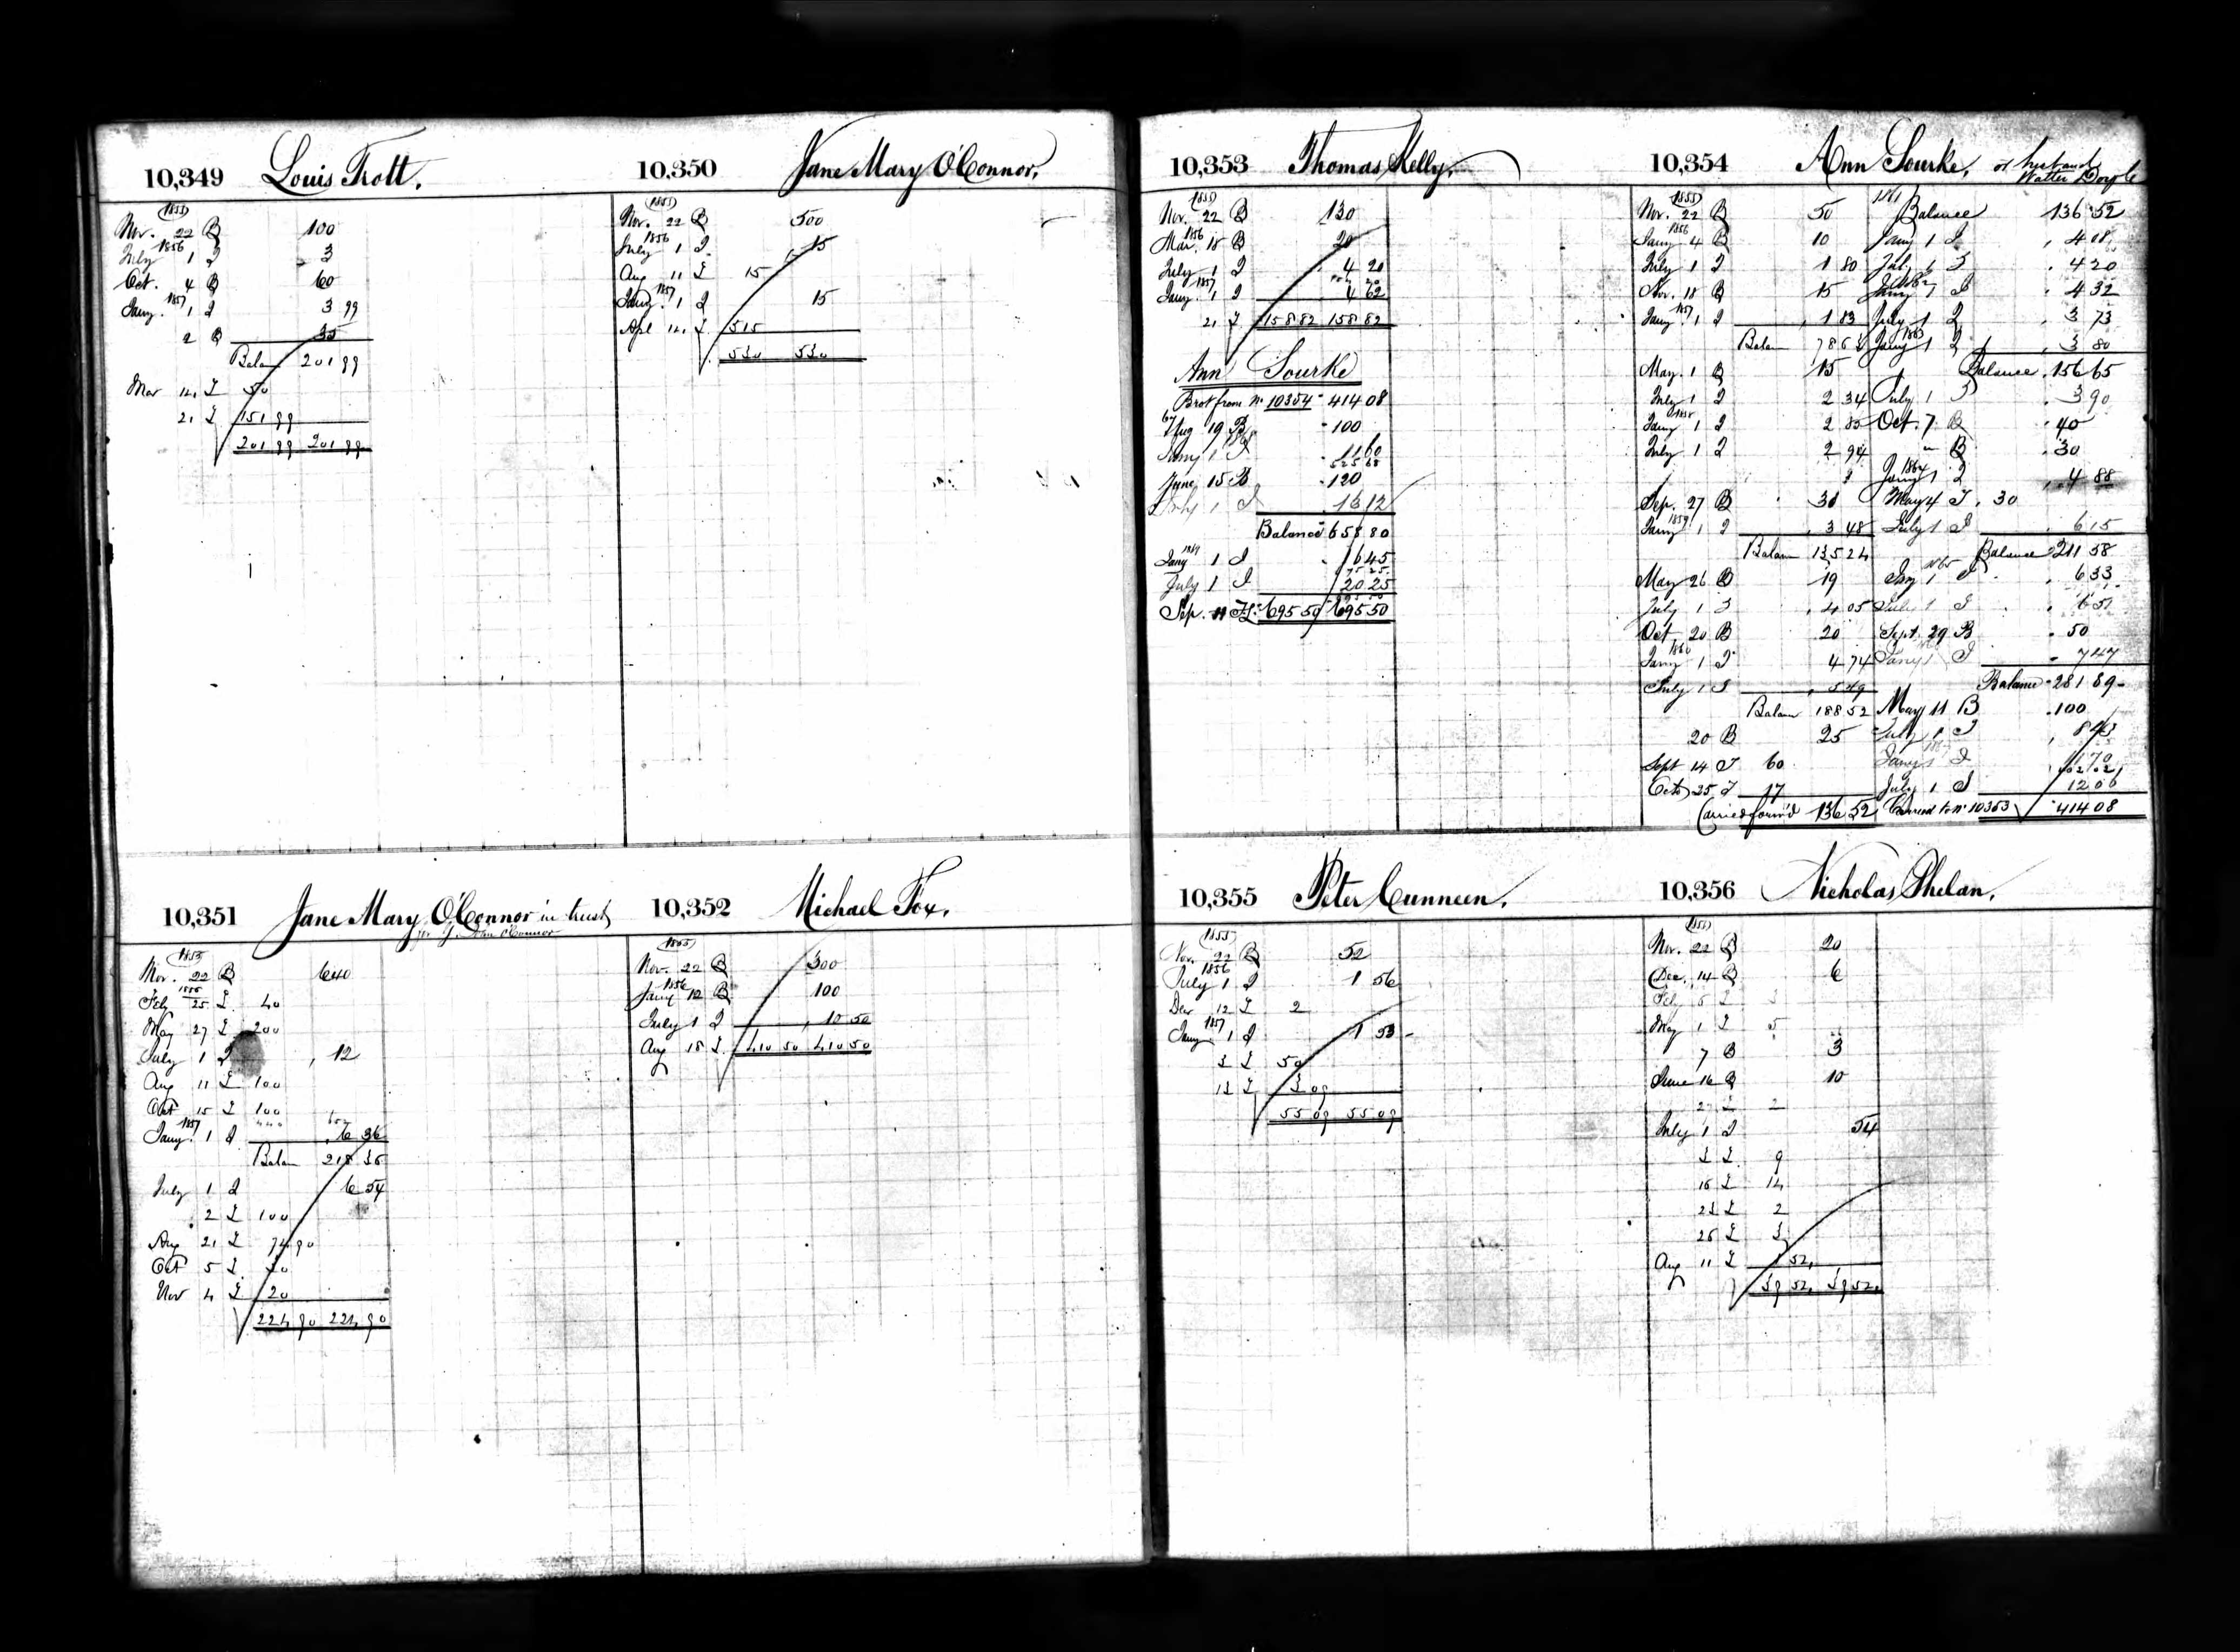 10,349 Louis Trott.
1855
Nov. 22 B 100
1856
July 1 I 3
Oct. 4 B 60
1857
Jany. 1 I 3 99
2 B 35
Balan 201 99
Mar 14 T 50
21 T 151 99
201 99 201 99
10,350 Jane Mary O'Connor.
1855
Nov. 22 B 500
1856
July 1 I 15
Aug 11 T 15
1857
Jany. 1 I 15
Apl 14 T 515
530 530
10,351 Jane Mary O'Connor in trust
John O'Connor
1855
Nov. 22 B 640
1856
Feb 25 T 40
May 27 T 200
July 1 I 12
Aug 11 T 100
Oct 15 T 100
1857
Jany. 1 I 6 36
Balan 218 36
July 1 I 6 54
2 T 100
Aug 21 T 74 90
Oct 5 T 30
Nov 4 T 20
224 90 224 90
10,352 Michael Fox.
1855
Nov. 22 B 300
1856
Jany 12 B 100
July 1 I 10 50
Aug 18 T 410 50 410 50
10,353 Thomas Kelly.
1855
Nov. 22 B 130
1856
Mar. 18 B 20
July 1 I 4 20
1857
Jany. 1 I 4 62
21 T 158 82 158 82
Ann Sourke
Brot from No 10354 414 08
67
Aug 19 B 100
Jany 1 I 11 60
525 68
June 15 B 120
July 1 I 13 12
Balance 658 80
1869
Jany 1 I 16 45
July 1 I 20 25
Sep. 11 T 695 50 695 50
10,354 Ann Sourke, or husband
Walter Doyle
1855
Nov. 22 B 50
1856
Jany 4 B 10
July 1 I 1 80
Nov. 18 B 15
1857
Jany. 1 I 1 83
Balan 78 63
May. 1 B 15
July 1 I 2 34
1858
Jany 1 I 2 85
July 1 I 2 94
Sep. 27 B 30
1859
Jany 1 I 3 48
Balan 135 24
May 26 B 19
July 1 I 4 05
Oct. 20 B 20
1860
Jany 1 I 4 74
July 1 I 5 49
Balan 188 52
20 B 25
Sept 14 T 60
Octo 25 T 17
Carried forw'd 136 52
1861
Balance 136 52
Jany 1 I 4 08
July 1 I 4 20
1862
Jany 1 I 4 32
July 1 I 3 73
1863
Jany 1 I 3 80
Balance 156 65
July 1 I 3 90
Oct. 7 B 40
" B 30
1864
Jany 1 I 4 88
May 4 T 30
July 1 I 6 15
Balance 211 58
1865
Jany 1 I 6 33
July 1 I 6 51
Sept. 29 B 50
Jany 1 I 7 47
Balance 281 89
May 11 B 100
July 1 I 8 43
Jany 1 I 11 70
402 02
July 1 I 12 06
Carried to No 10353 414 08
10,355 Peter Cunneen.
1855
Nov. 22 B 52
1856
July 1 I 1 56
Dec 12 T 2
1857
Jany. 1 I 1 53
3 T 50
13 T 3 09
55 09 55 09
10,356 Nicholas Phelan.
1855
Nov. 22 B 20
Dec. 14 B 6
Feb 5 T 3
May 1 T 5
7 B 3
June 16 B 10
27 T 2
July 1 I 54
3 T 9
16 T 14
23 T 2
26 T 3
Aug 11 T 1 54
39 54 39 54